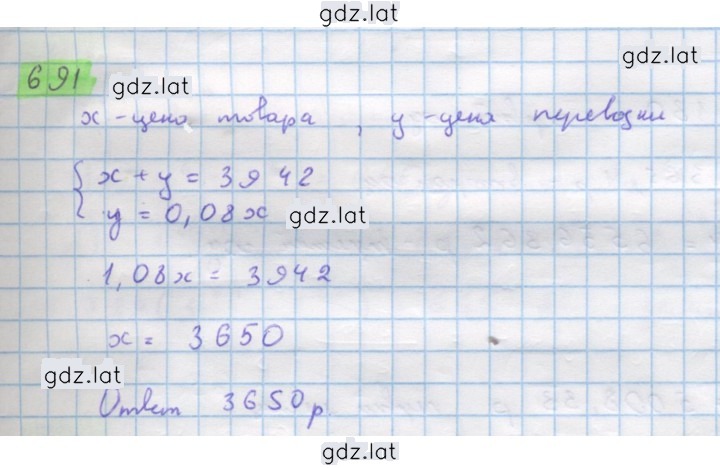 gdz.lat
gdz.lat
691 gdz.lat
x - цена товара, y - цена перевозки
x + y = 3942
y = 0,08x gdz.lat
1,08x = 3942
x = 3650
gdz.lat
Ответ 3650 р
gdz.lat